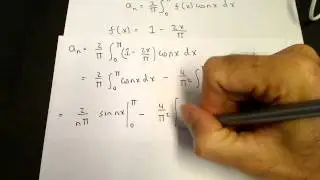 aₙ = 2/π ∫₀^π f(x) cos nx dx
f(x) = 1 - 2x/π
aₙ = 2/π ∫₀^π (1 - 2x/π) cos nx dx
= 2/π ∫₀^π cos nx dx - 4/π² ∫
= 2/nπ sin nx |₀^π - 4/π² [